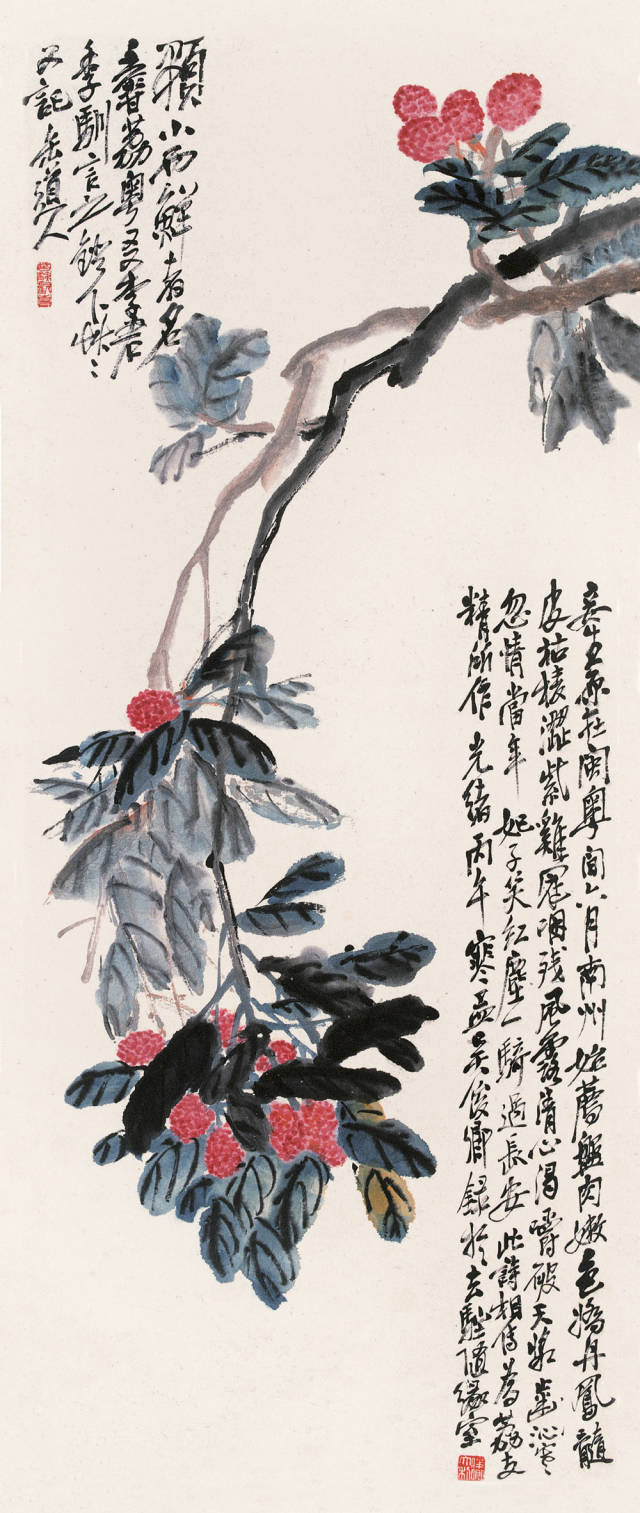 妾生原在閩粵間六月南州始薦盤肉嫩色嬌丹鳳髓
皮枯棱澀紫雞冠咽殘風露清心渴嚼破天漿齒沁寒
忽情當年妃子笑紅塵一騎過長安此詩相傳爲荔支
精所作光緒丙午寒孟吳俊卿録於去駐隨緣室
顆小而鮮者名
荔粵友李君
季馴言之
又記 缶道人